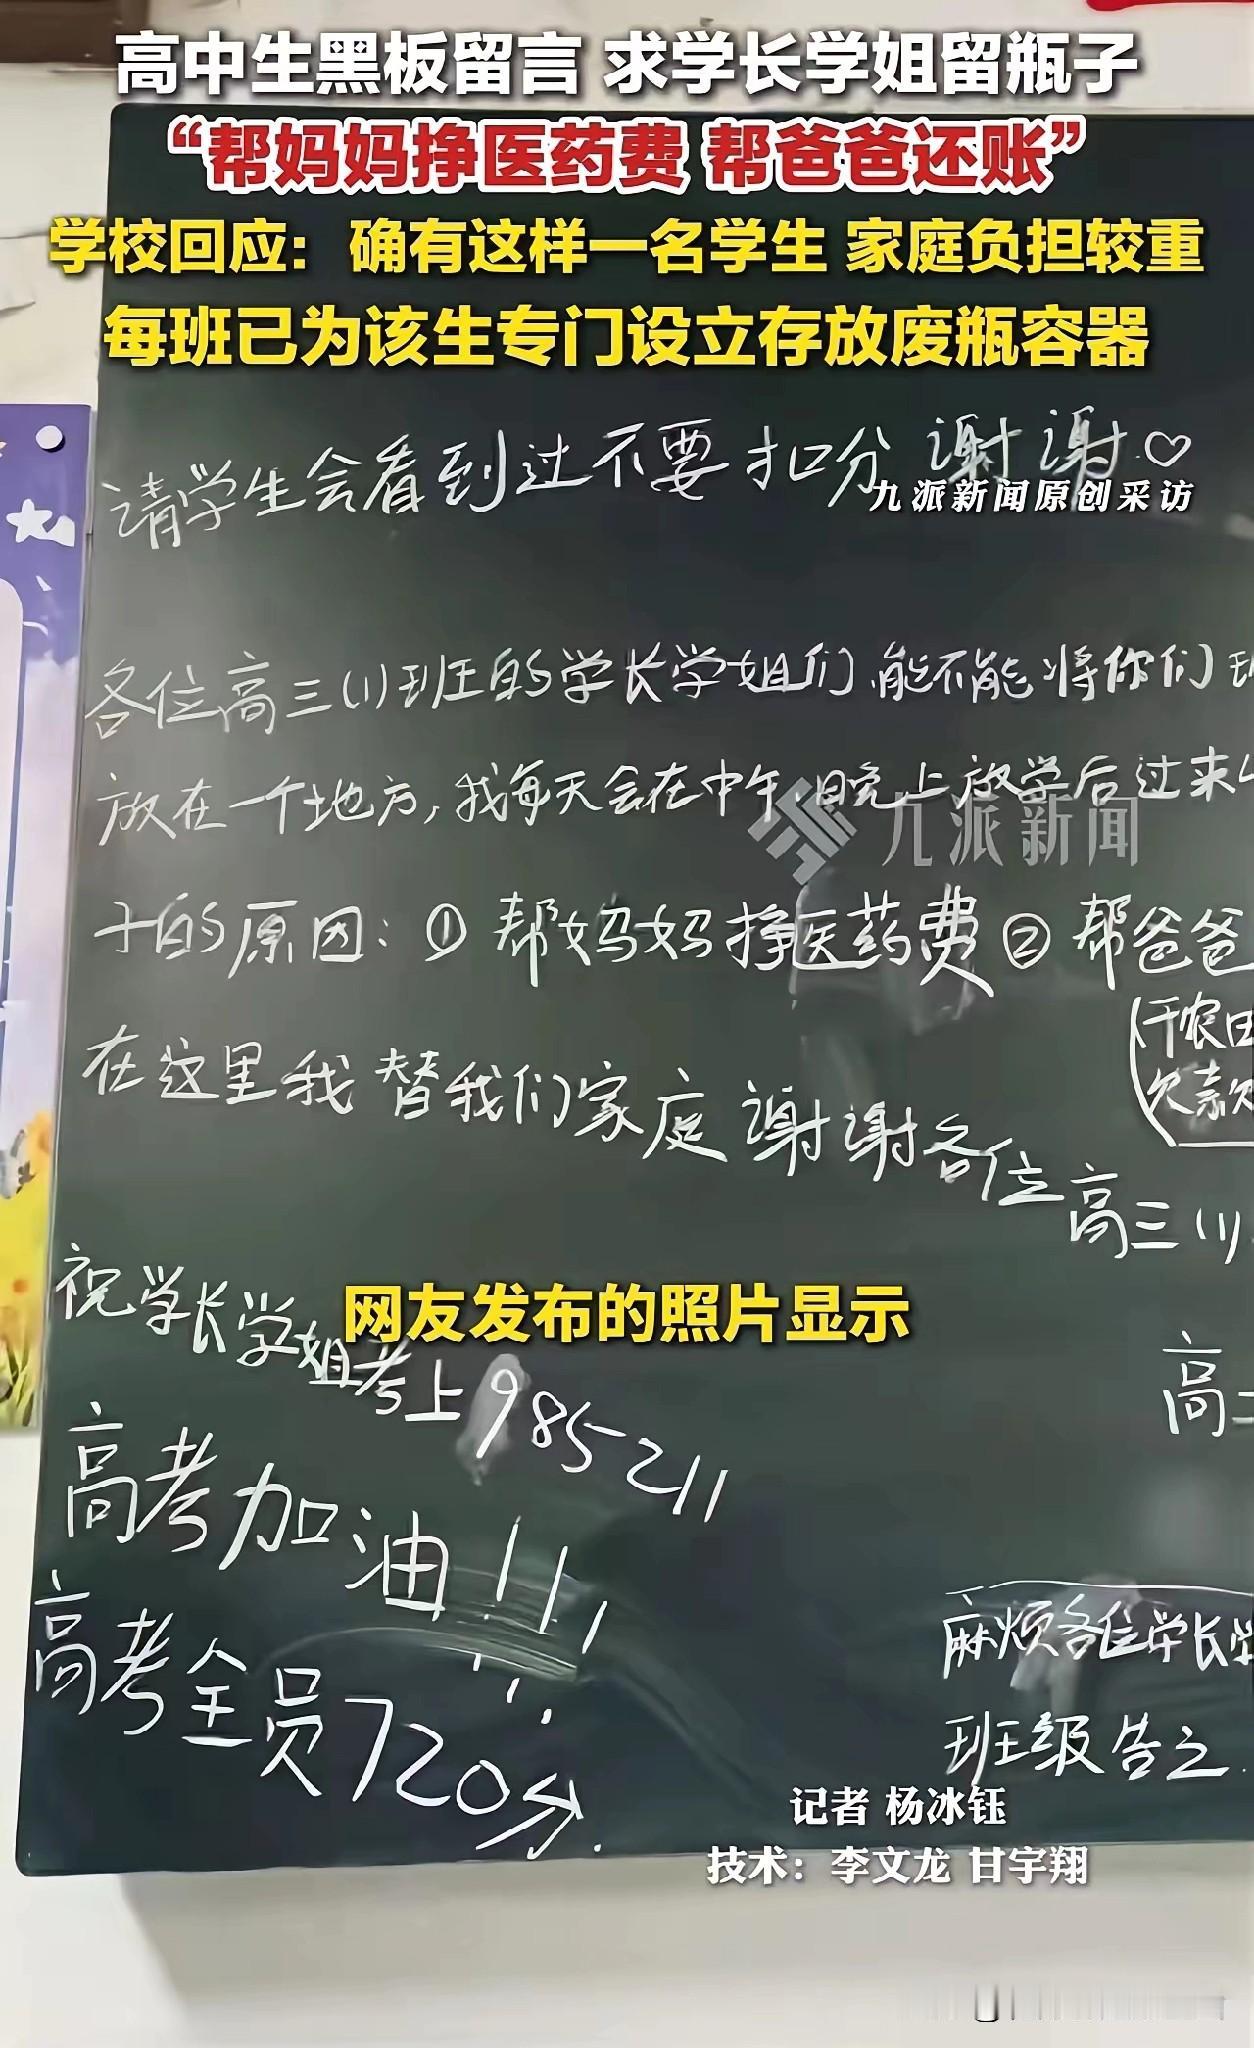 高中生黑板留言 求学长学姐留瓶子
“帮妈妈挣医药费 帮爸爸还账”
学校回应：确有这样一名学生 家庭负担较重
每班已为该生专门设立存放废瓶容器
请学生会看到过不要扣分 谢谢.♡
九派新闻原创采访
各位高三(1)班的学长学姐们,能不能将你们
放在一个地方,我每天会在中午,晚上放学后过来
九派新闻
子的原因:① 帮妈妈挣医药费 ② 帮爸爸
(干农
欠款
在这里我替我们家庭谢谢各位高三(1)
祝学长学姐考上985 211
网友发布的照片显示
高
高考加油!!!
高考全员720分.
麻烦各位学长
班级告之.
记者 杨冰钰
技术：李文龙 甘宇翔